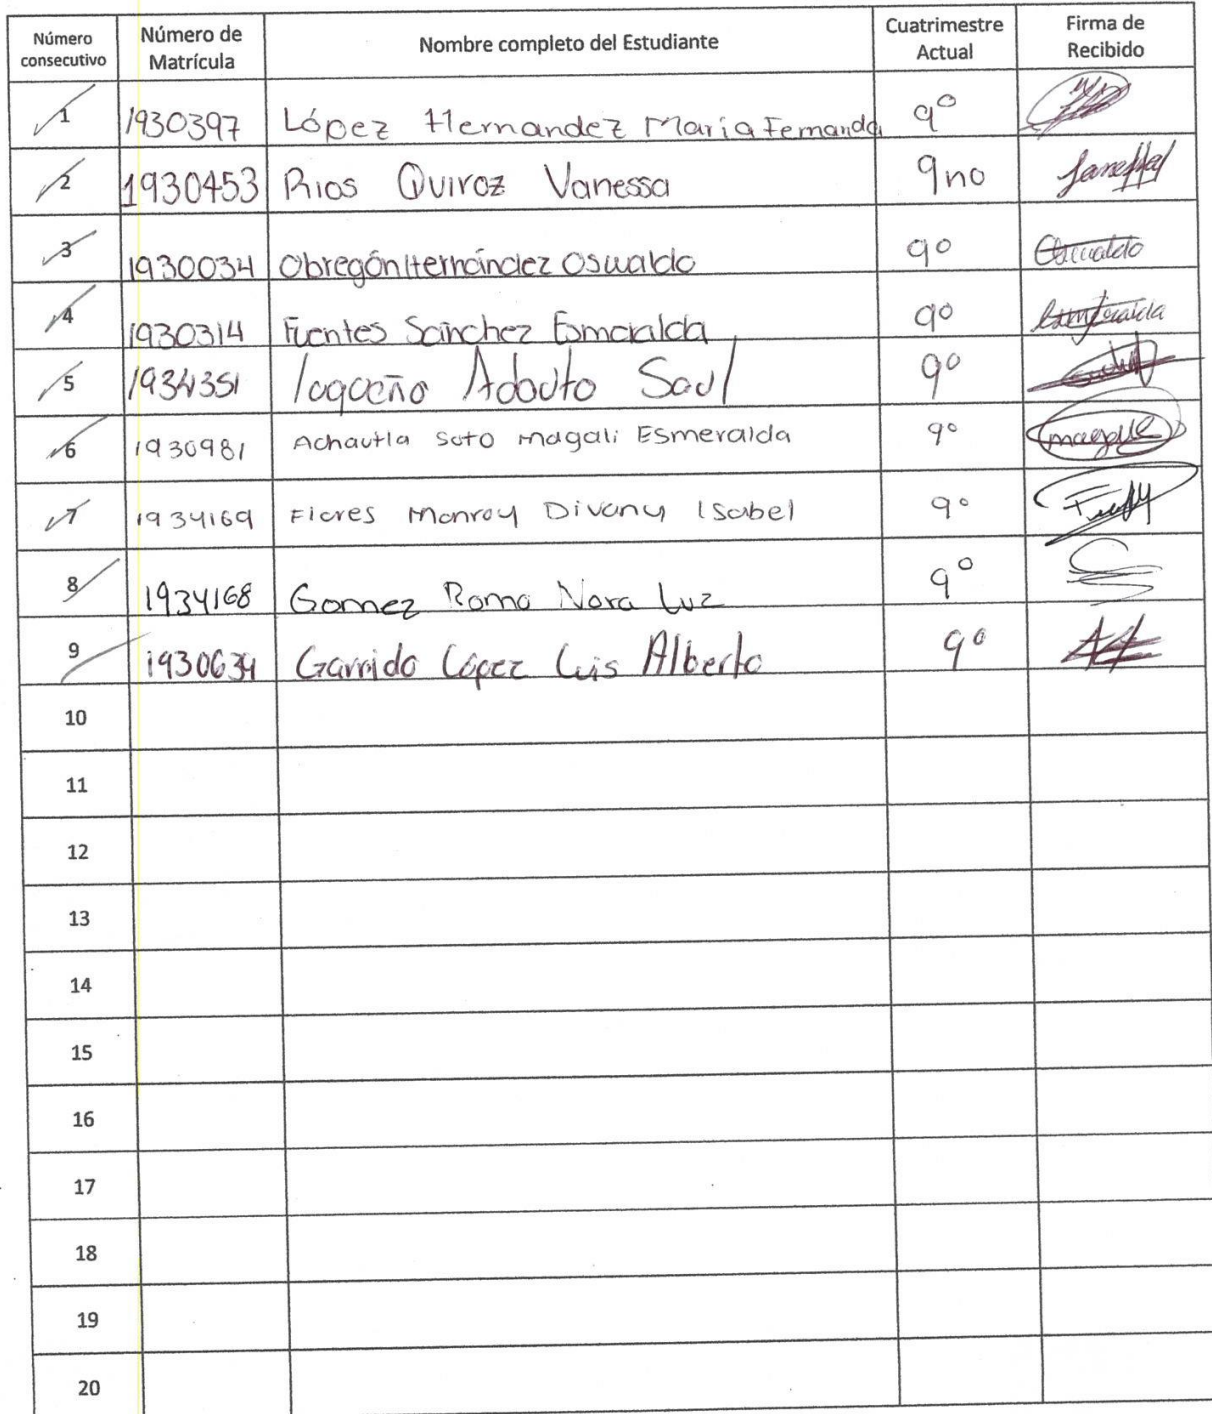 Número consecutivo Número de Matrícula Nombre completo del Estudiante Cuatrimestre Actual Firma de Recibido
1 1930397 López Hernandez Maria Fernanda 9°
2 1930453 Rios Quiroz Vanessa 9no
3 1930034 Obregón Hernández Oswaldo 9° Oswaldo
4 1930314 Fuentes Sánchez Esmeralda 9° Esmeralda
5 1934351 Adauto Saul 9°
6 1930981 Achautla Soto Magali Esmeralda 9°
7 1934169 Flores Monroy Divany Isabel 9°
8 1934168 Gomez Romo Nora Luz 9°
9 1930634 Garrido López Luis Alberto 9°
10
11
12
13
14
15
16
17
18
19
20